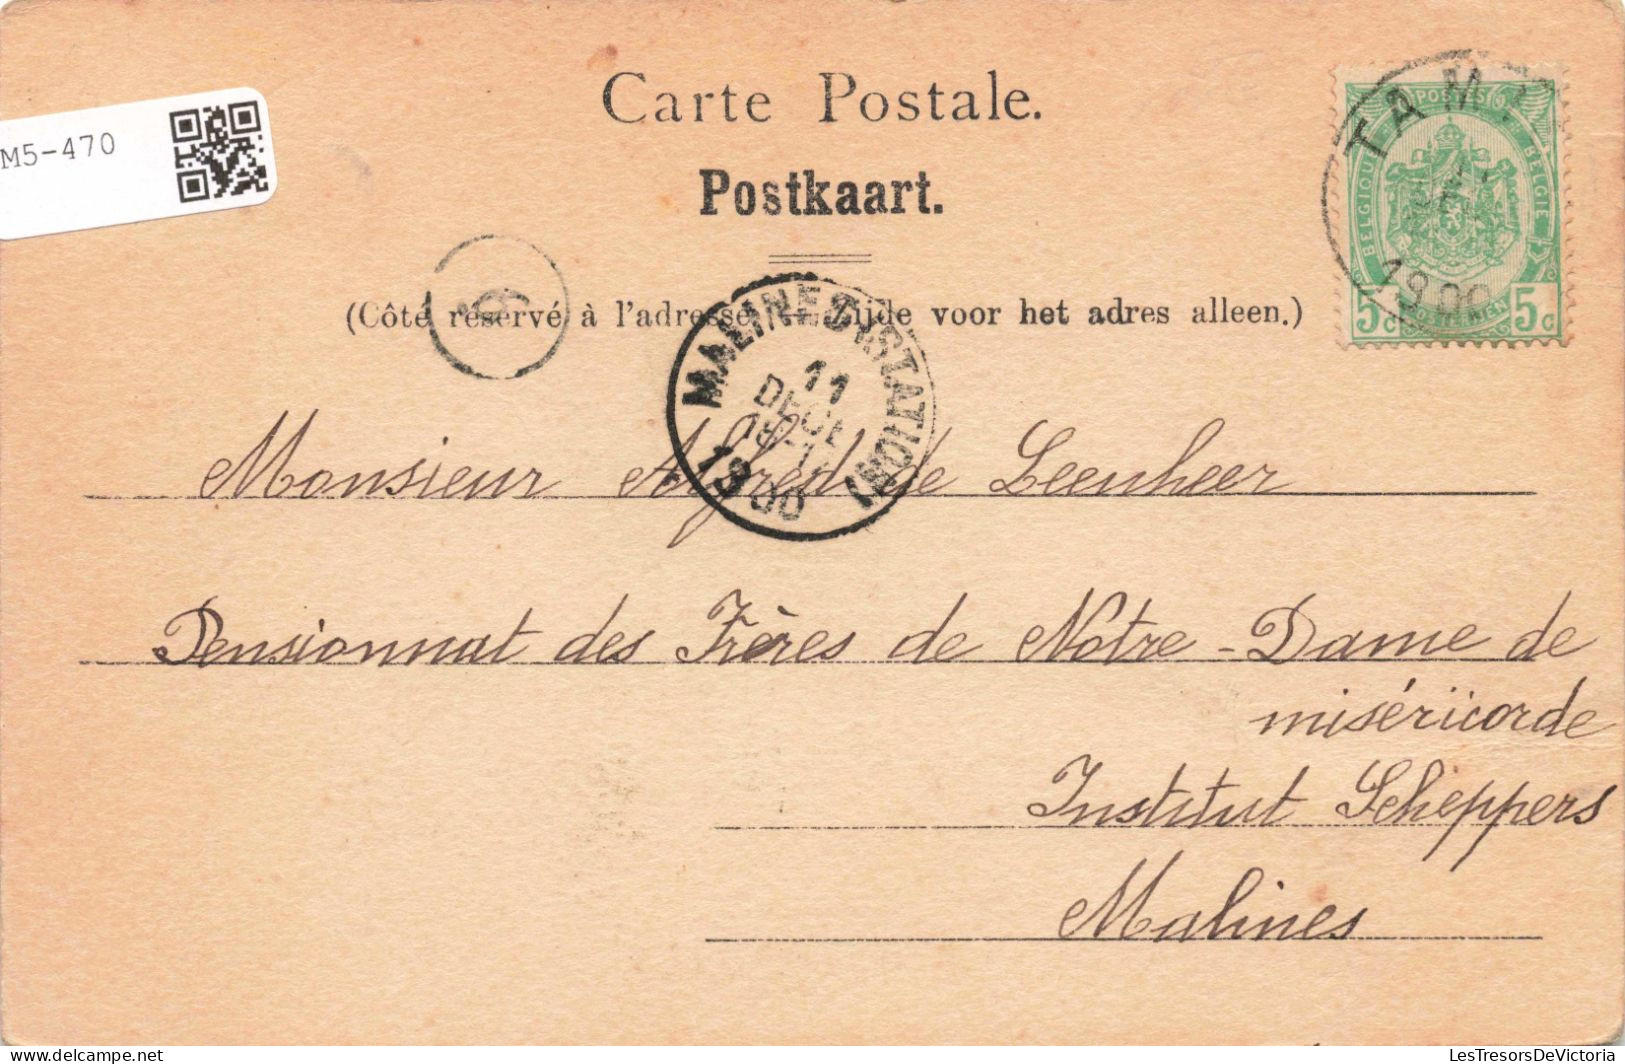 Carte Postale.
Postkaart.
M5-470
(Côté réservé à l'adresse. — Zijde voor het adres alleen.)
POSTES
BELGIQUE BELGIE
5c 5c
TAM
1900
MALINES (STATION)
11
DECE
1900
Monsieur Alfred de Leenheer
Pensionnat des Frères de Notre-Dame de
miséricorde
Institut Scheppers
Malines
delcampe.net
LesTresorsDeVictoria